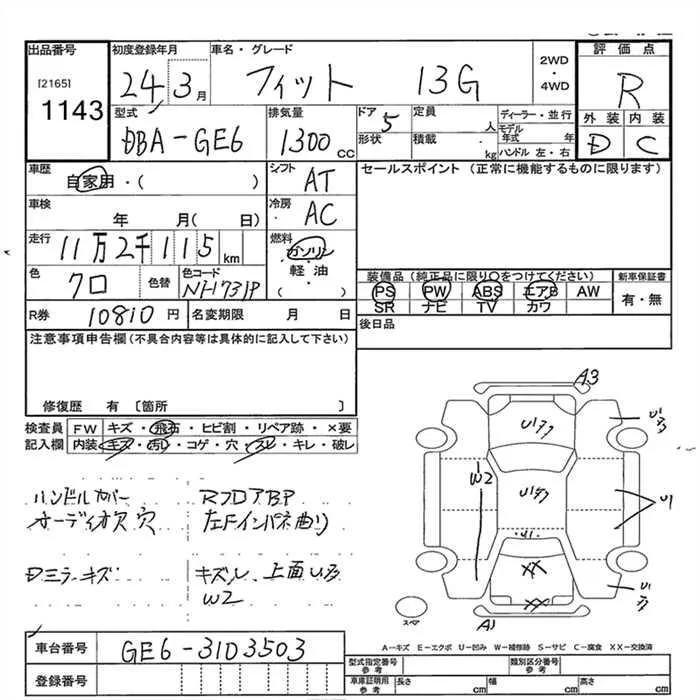 出品番号
[2165]
1143
初度登録年月
24 3月
車名・グレード
フィット 13G
2WD
・
4WD
評価点
R
外装 内装
D C
型式
DBA-GE6
排気量
1300 CC
ドア 5
形状
定員 人
積載 kg
ディーラー・並行
モデル年式 年
ハンドル 左・右
車歴
自家用・( )
シフト
AT
セールスポイント (正常に機能するものに限ります)
車検
年 月( 日)
冷房
AC
走行
11万2千115km
燃料
ガソリン
・
軽・油
・
( )
色
クロ
色替
色コード
NH731P
装備品(純正品に限り○をつけてください)
新車保証書
PS PW ABS エアB AW
SR ナビ TV カワ
有・無
R券 10810円
名変期限 月 日
後日品
注意事項申告欄(不具合内容等は具体的に記入して下さい)
修復歴 有〔箇所 〕
検査員
記入欄
FW キズ・飛石・ヒビ割・リペア跡・×要
内装 キズ・汚れ・コゲ・穴・スレ・キレ・破レ
ハンドルカバー
オーディオス 穴
Dミラーキズ
RフロアBP
左Fインパネ曲り
キズ 上面U3
W2
A3
U3
U1
W2
U1
XX
XX
A1
スペア
A-キズ E-エクボ U-凹み W-補修跡 S-サビ C-腐食 XX-交換済
車台番号
GE6-3103503
登録番号
型式指定番号
参考
類別区分番号
参考
車庫証明用
参考
長さ cm 幅 cm 高さ cm